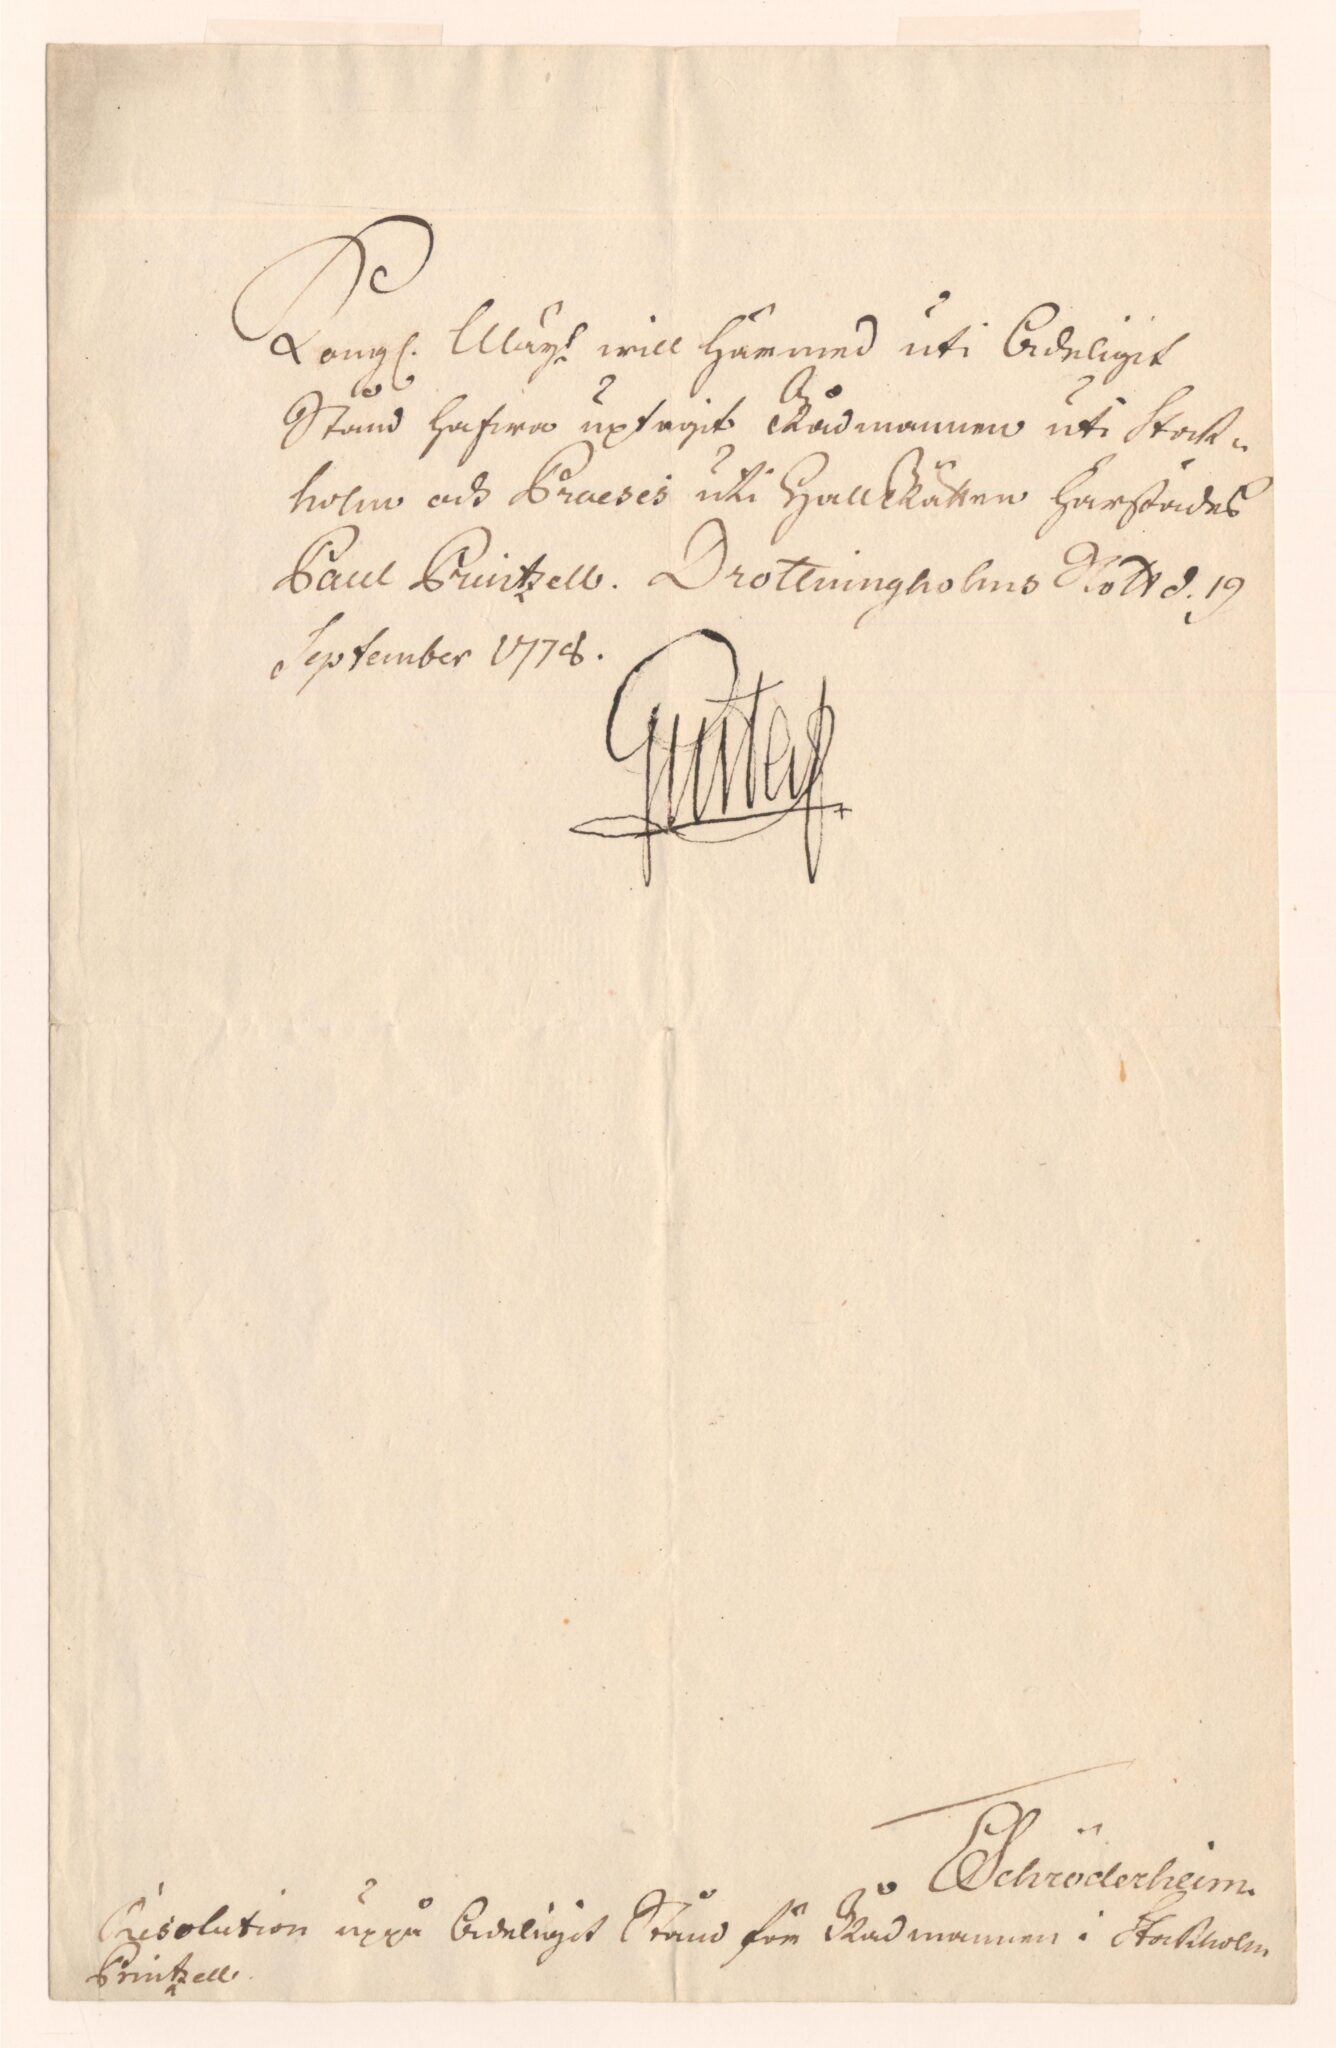 Kongl. Maÿt will härmed uti Adeligit
Stånd hafwa uptagit Rådmannen uti Stock-
holm och Praeses uti HallRätten härstädes
Paul Printzell. Drottningholms Slott d. 19
September 1778.
Gustaf
ESchröderheim.
Resolution uppå Adeligit Stånd för Rådmannen i Stockholm
Printzell.